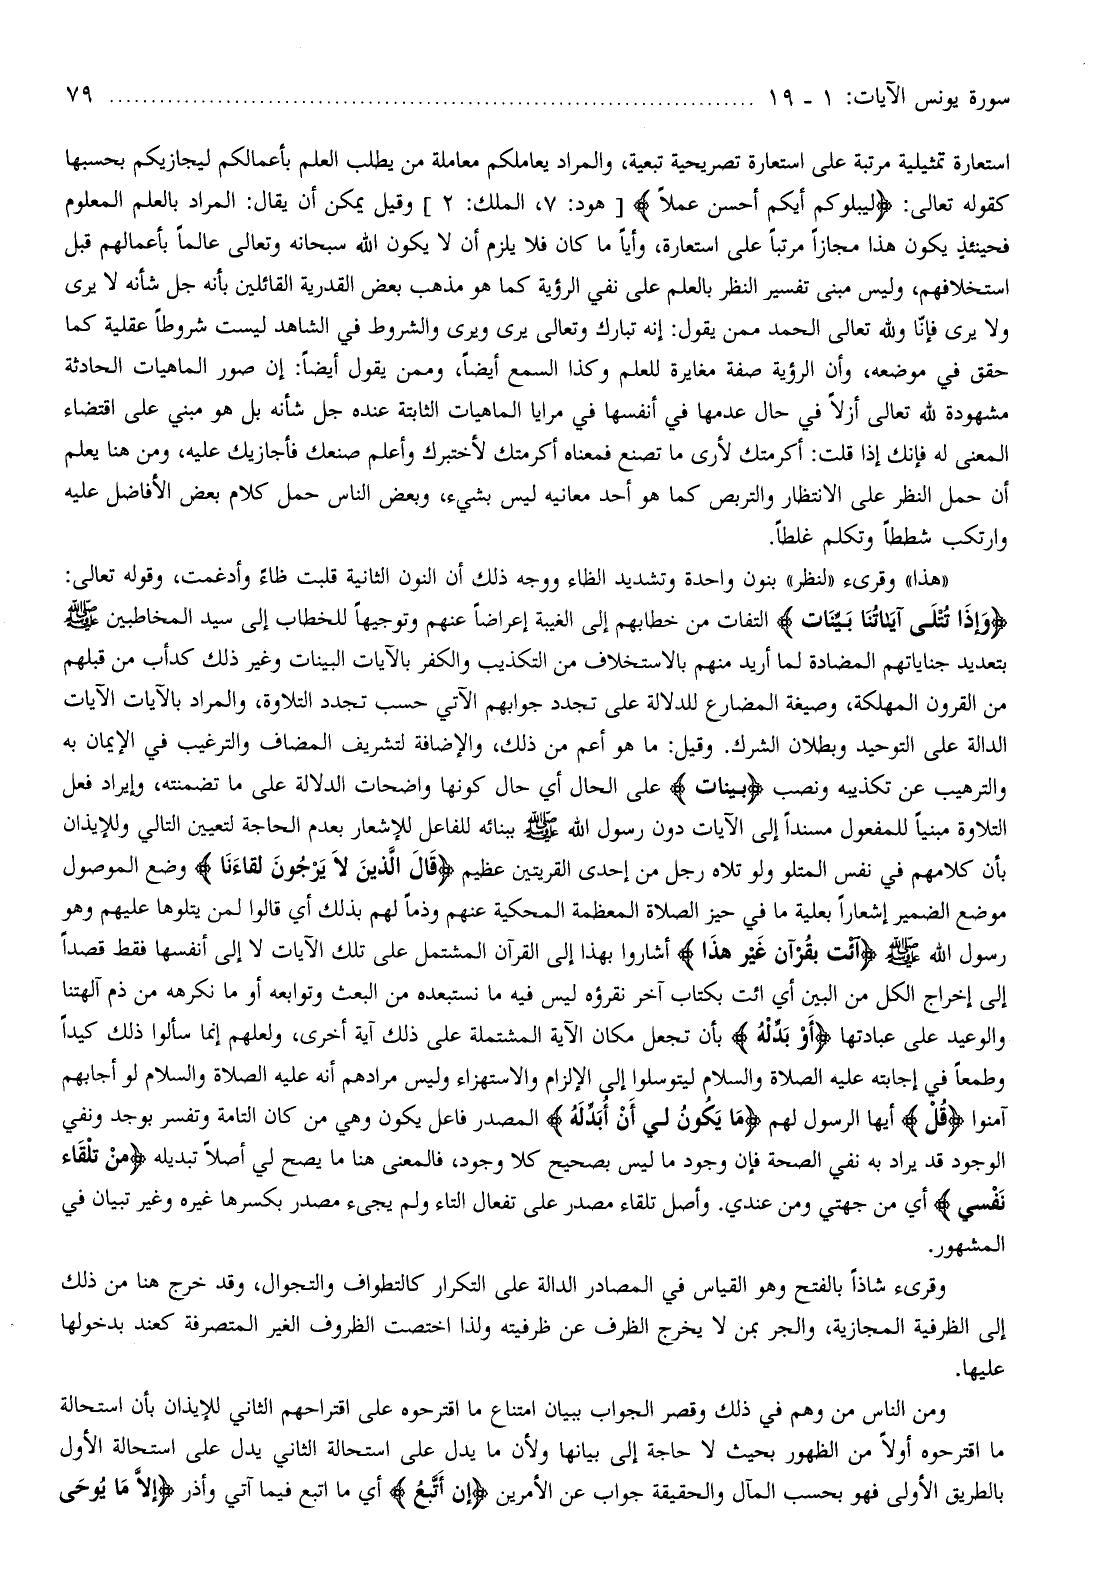 سورة يونس الآيات: ١ - ١٩ ........................................................................... ٧٩
استعارة تمثيلية مرتبة على استعارة تصريحية تبعية، والمراد يعاملكم معاملة من يطلب العلم بأعمالكم ليجازيكم بحسبها
كقوله تعالى: ﴿ليبلوكم أيكم أحسن عملاً﴾ [ هود: ٧، الملك: ٢ ] وقيل يمكن أن يقال: المراد بالعلم المعلوم
فحينئذٍ يكون هذا مجازاً مرتباً على استعارة، وأياً ما كان فلا يلزم أن لا يكون الله سبحانه وتعالى عالماً بأعمالهم قبل
استخلافهم، وليس مبنى تفسير النظر بالعلم على نفي الرؤية كما هو مذهب بعض القدرية القائلين بأنه جل شأنه لا يرى
ولا يرى فإنّا ولله تعالى الحمد ممن يقول: إنه تبارك وتعالى يرى ويرى والشروط في الشاهد ليست شروطاً عقلية كما
حقق في موضعه، وأن الرؤية صفة مغايرة للعلم وكذا السمع أيضاً، وممن يقول أيضاً: إن صور الماهيات الحادثة
مشهودة لله تعالى أزلاً في حال عدمها في أنفسها في مرايا الماهيات الثابتة عنده جل شأنه بل هو مبني على اقتضاء
المعنى له فإنك إذا قلت: أكرمتك لأرى ما تصنع فمعناه أكرمتك لأختبرك وأعلم صنعك فأجازيك عليه، ومن هنا يعلم
أن حمل النظر على الانتظار والتربص كما هو أحد معانيه ليس بشيء، وبعض الناس حمل كلام بعض الأفاضل عليه
وارتكب شططاً وتكلم غلطاً.
«هذا» وقرىء «لنظر» بنون واحدة وتشديد الظاء ووجه ذلك أن النون الثانية قلبت ظاءً وأدغمت، وقوله تعالى:
﴿وَإِذَا تُتْلَى آيَاتُنَا بَيِّنَات﴾ التفات من خطابهم إلى الغيبة إعراضاً عنهم وتوجيهاً للخطاب إلى سيد المخاطبين ﷺ
بتعديد جناياتهم المضادة لما أريد منهم بالاستخلاف من التكذيب والكفر بالآيات البينات وغير ذلك كدأب من قبلهم
من القرون المهلكة، وصيغة المضارع للدلالة على تجدد جوابهم الآتي حسب تجدد التلاوة، والمراد بالآيات الآيات
الدالة على التوحيد وبطلان الشرك. وقيل: ما هو أعم من ذلك، والإضافة لتشريف المضاف والترغيب في الإيمان به
والترهيب عن تكذيبه ونصب ﴿بينات﴾ على الحال أي حال كونها واضحات الدلالة على ما تضمنته، وإيراد فعل
التلاوة مبنياً للمفعول مسنداً إلى الآيات دون رسول الله ﷺ ببنائه للفاعل للإشعار بعدم الحاجة لتعيين التالي وللإيذان
بأن كلامهم في نفس المتلو ولو تلاه رجل من إحدى القريتين عظيم ﴿قَالَ الَّذينَ لاَ يَرْجُونَ لقاءَنَا﴾ وضع الموصول
موضع الضمير إشعاراً بعلية ما في حيز الصلاة المعظمة المحكية عنهم وذماً لهم بذلك أي قالوا لمن يتلوها عليهم وهو
رسول الله ﷺ ﴿آئْت بقُرْآن غَيْر هذَا﴾ أشاروا بهذا إلى القرآن المشتمل على تلك الآيات لا إلى أنفسها فقط قصداً
إلى إخراج الكل من البين أي ائت بكتاب آخر نقرؤه ليس فيه ما نستبعده من البعث وتوابعه أو ما نكرهه من ذم آلهتنا
والوعيد على عبادتها ﴿أَوْ بَدِّلْهُ﴾ بأن تجعل مكان الآية المشتملة على ذلك آية أخرى، ولعلهم إنما سألوا ذلك كيداً
وطمعاً في إجابته عليه الصلاة والسلام ليتوسلوا إلى الإلزام والاستهزاء وليس مرادهم أنه عليه الصلاة والسلام لو أجابهم
آمنوا ﴿قُلْ﴾ أيها الرسول لهم ﴿مَا يَكُونُ لي أَنْ أُبَدِّلَهُ﴾ المصدر فاعل يكون وهي من كان التامة وتفسر بوجد ونفي
الوجود قد يراد به نفي الصحة فإن وجود ما ليس بصحيح كلا وجود، فالمعنى هنا ما يصح لي أصلاً تبديله ﴿منْ تلْقَاء
نَفْسي﴾ أي من جهتي ومن عندي. وأصل تلقاء مصدر على تفعال التاء ولم يجىء مصدر بكسرها غيره وغير تبيان في
المشهور.
وقرىء شاذاً بالفتح وهو القياس في المصادر الدالة على التكرار كالتطواف والتجوال، وقد خرج هنا من ذلك
إلى الظرفية المجازية، والجر بمن لا يخرج الظرف عن ظرفيته ولذا اختصت الظروف الغير المتصرفة كعند بدخولها
عليها.
ومن الناس من وهم في ذلك وقصر الجواب ببيان امتناع ما اقترحوه على اقتراحهم الثاني للإيذان بأن استحالة
ما اقترحوه أولاً من الظهور بحيث لا حاجة إلى بيانها ولأن ما يدل على استحالة الثاني يدل على استحالة الأول
بالطريق الأولى فهو بحسب المآل والحقيقة جواب عن الأمرين ﴿إن أَتَّبعُ﴾ أي ما اتبع فيما آتي وأذر ﴿إلاَّ مَا يُوحَى